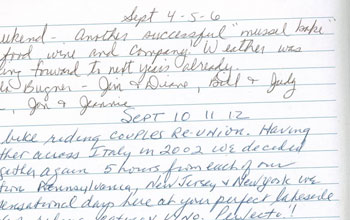 Sept 4-5-6
ekend - Another successful "mussel bake"
ford wine and company. Weather was
ing forward to next years already.
Bugner - Jim & Diane, Bill & Judy
Jon & Jeanne
SEPT 10 11 12
bike riding COUPLES RE-UNION. Having
ther across Italy in 2002 we decided
gether again 5 hours from each of our
Pennsylvania, New Jersey & New York we
ensational days here at your perfect lakeside